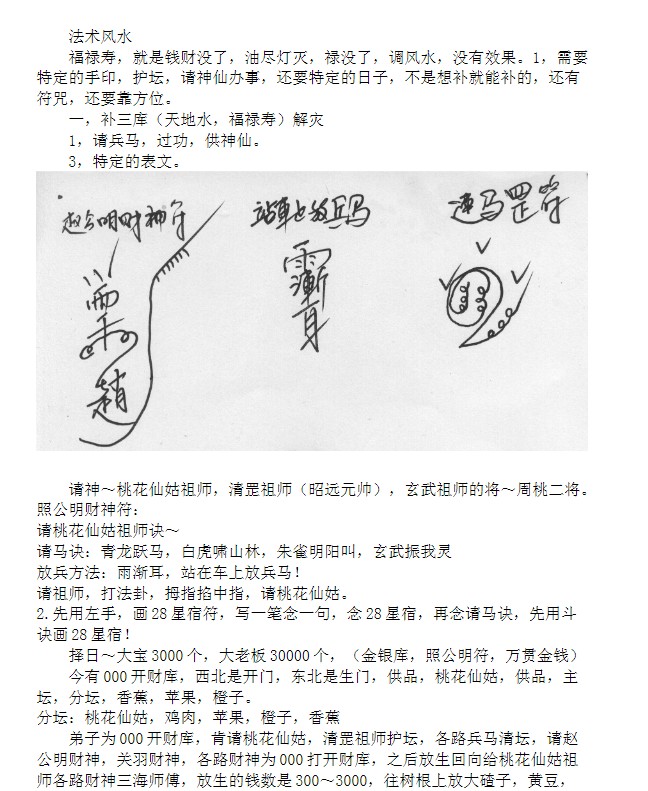 法术风水
福禄寿，就是钱财没了，油尽灯灭，禄没了，调风水，没有效果。1，需要
特定的手印，护坛，请神仙办事，还要特定的日子，不是想补就能补的，还有
符咒，还要靠方位。
一，补三库（天地水，福禄寿）解灾
1，请兵马，过功，供神仙。
3，特定的表文。
赵公明财神符
站車上放兵马
速马罡符
請神～桃花仙姑祖师，清罡祖师（昭远元帅），玄武祖师的将～周桃二将。
照公明财神符：
请桃花仙姑祖师诀～
请马诀：青龙跃马，白虎啸山林，朱雀明阳叫，玄武振我灵
放兵方法：雨渐耳，站在车上放兵马！
请祖师，打法卦，拇指掐中指，请桃花仙姑。
2.先用左手，画28星宿符，写一笔念一句，念28星宿，再念请马诀，先用斗
诀画28星宿！
择日～大宝3000个，大老板30000个，（金银库，照公明符，万贯金钱）
今有000开财库，西北是开门，东北是生门，供品，桃花仙姑，供品，主
坛，分坛，香蕉，苹果，橙子。
分坛：桃花仙姑，鸡肉，苹果，橙子，香蕉
弟子为000开财库，肯请桃花仙姑，清罡祖师护坛，各路兵马清坛，请赵
公明财神，关羽财神，各路财神为000打开财库，之后放生回向给桃花仙姑祖
师各路财神三海师傅，放生的钱数是300～3000，往树根上放大碴子，黄豆，